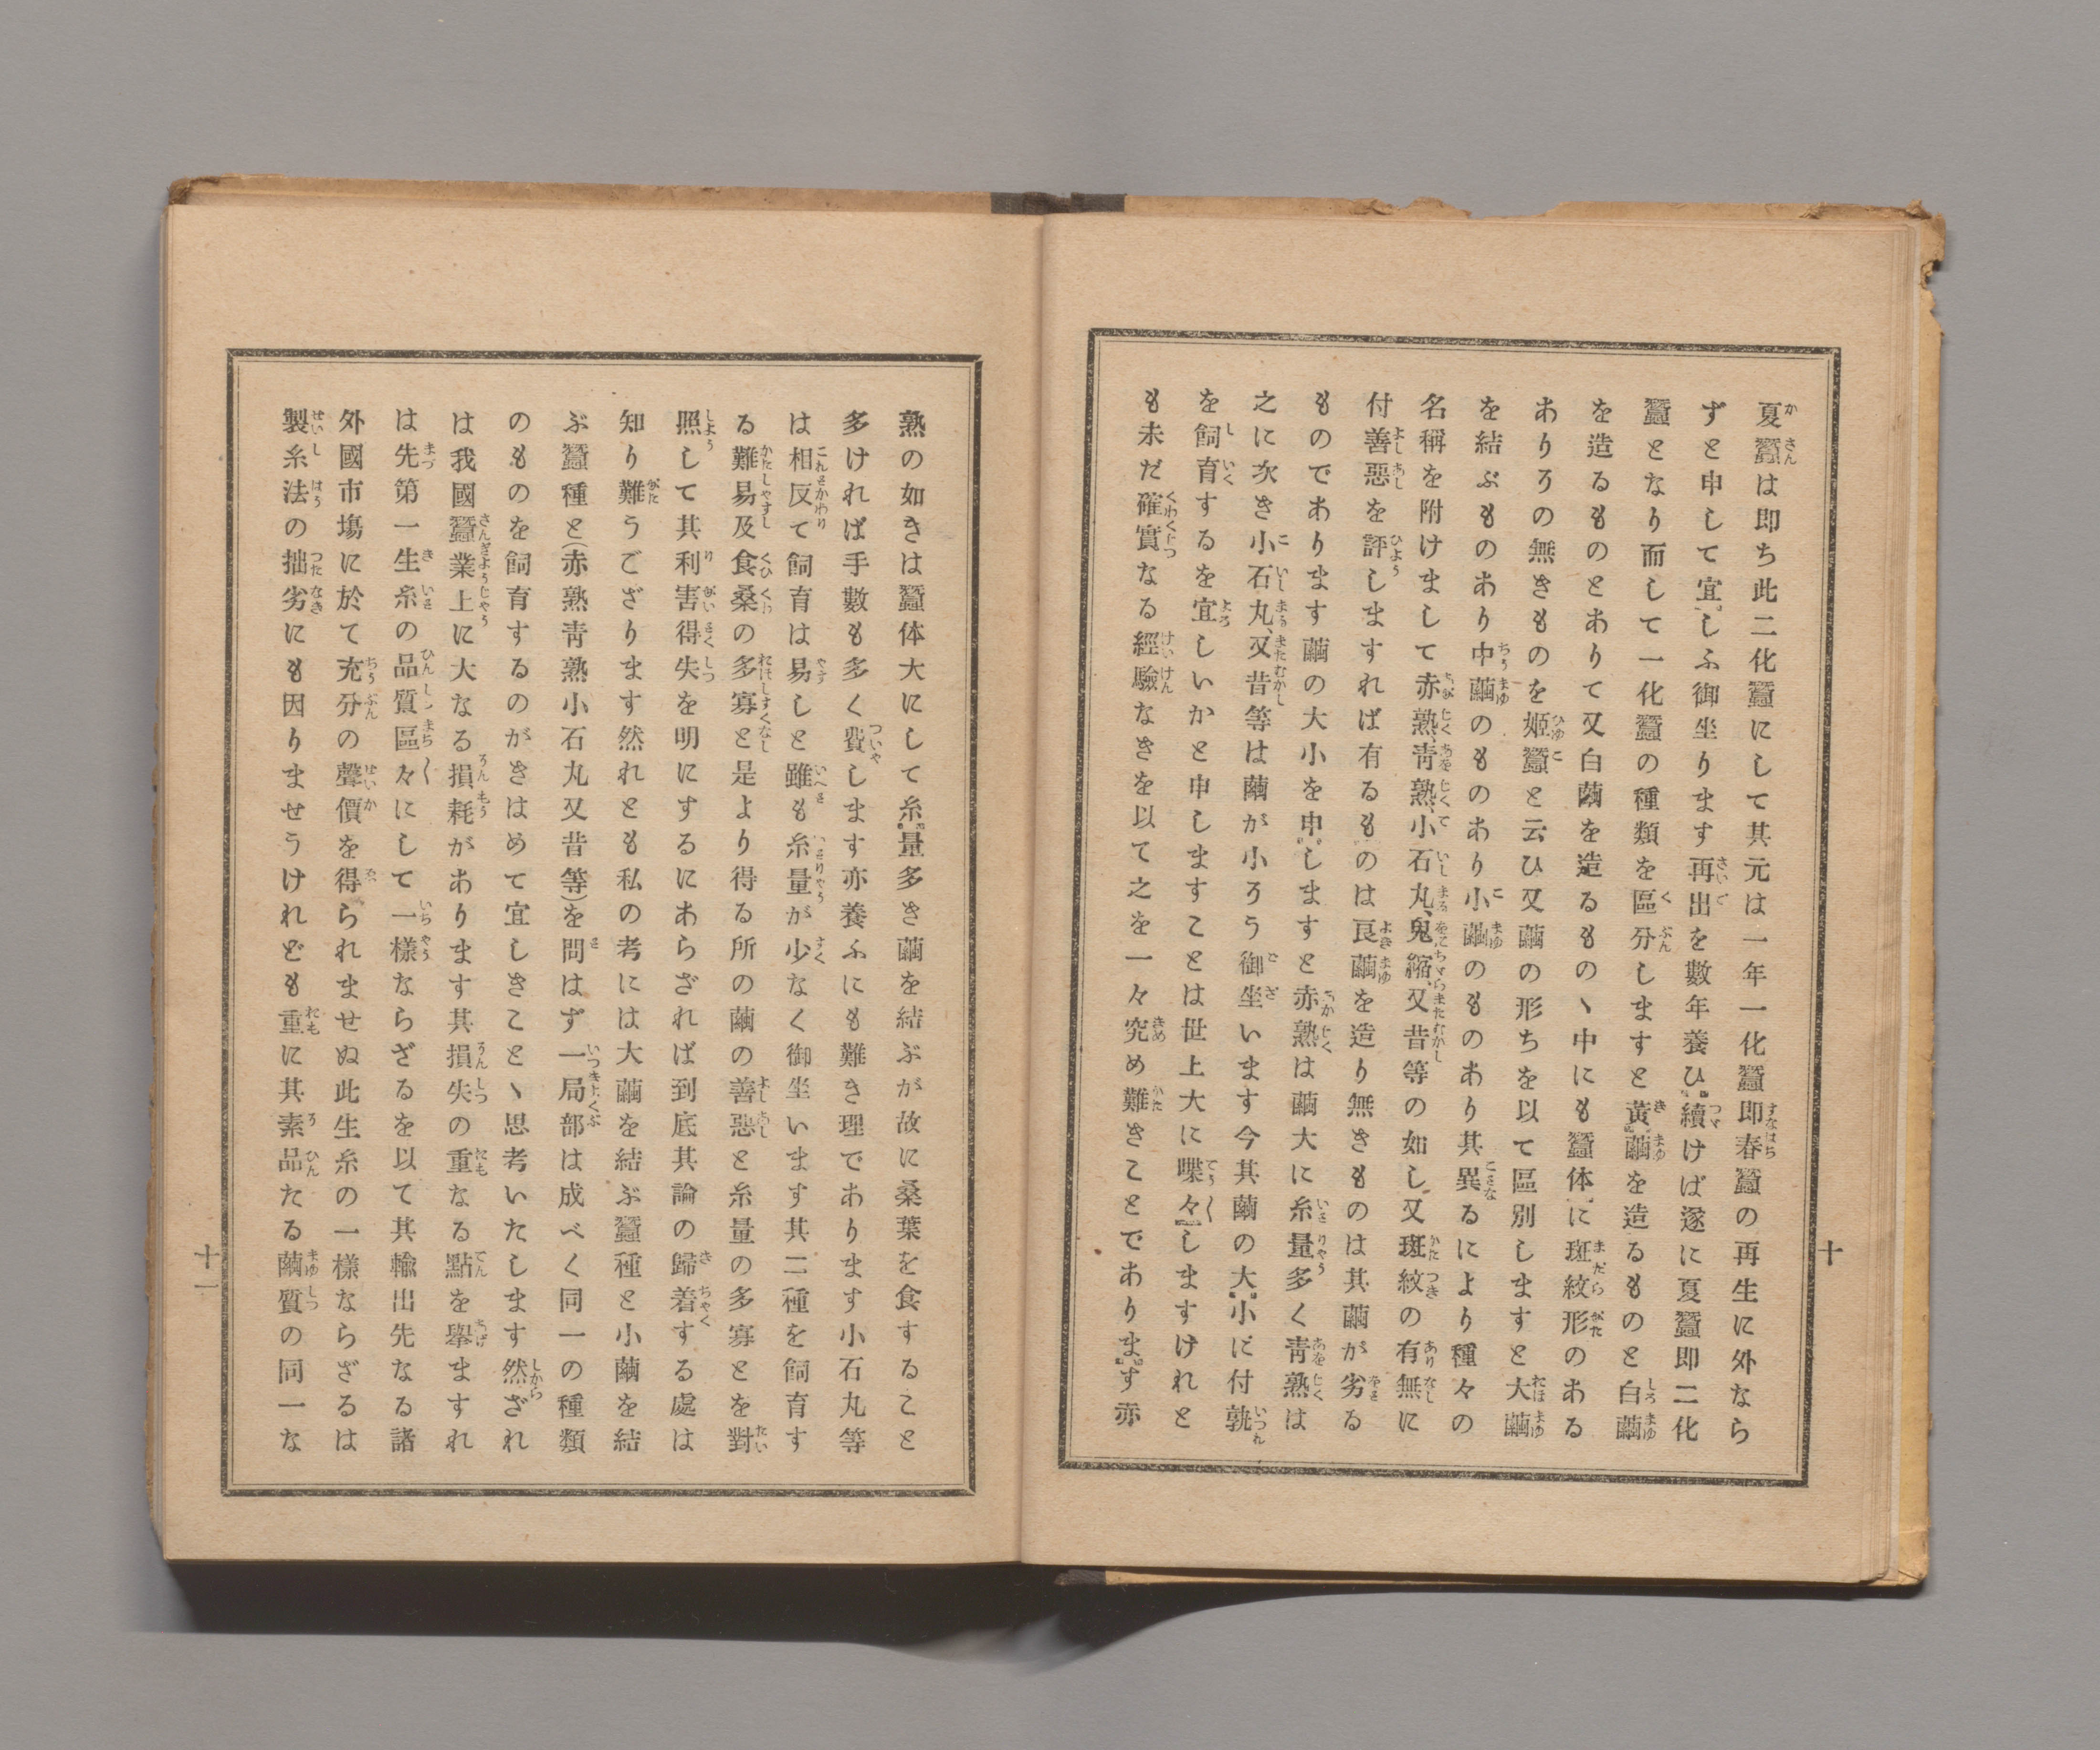 夏蠶は即ち此二化蠶にして其元は一年一化蠶即春蠶の再生に外なら
ずと申して宜しふ御坐ります再出を數年養ひ續けば遂に夏蠶即二化
蠶となり而して一化蠶の種類を區分しますと黃繭を造るものと白繭
を造るものとありて又白繭を造るものヽ中にも蠶体に斑紋形のある
ありろの無きものを姬蠶と云ひ又繭の形ちを以て區別しますと大繭
を結ぶものあり中繭のものあり小繭のものあり其異るにより種々の
名稱を附けまして赤熟、靑熟、小石丸、鬼縮、又昔等の如し又斑紋の有無に
付善惡を評しますれば有るものは良繭を造り無きものは其繭が劣る
ものであります繭の大小を申しますと赤熟は繭大に糸量多く靑熟は
之に次き小石丸、又昔等は繭が小ろう御坐います今其繭の大小に付孰
を飼育するを宜しいかと申しますことは世上大に喋々しますけれと
も未だ確實なる經驗なきを以て之を一々究め難きことであります亦
十
熟の如きは蠶体大にして糸量多き繭を結ぶが故に桑葉を食すること
多ければ手數も多く費します亦養ふにも難き理であります小石丸等
は相反て飼育は易しと雖も糸量が少なく御坐います其二種を飼育す
る難易及食桑の多寡と是より得る所の繭の善惡と糸量の多寡とを對
照して其利害得失を明にするにあらざれば到底其論の歸着する處は
知り難うござります然れとも私の考には大繭を結ぶ蠶種と小繭を結
ぶ蠶種と(赤熟靑熟小石丸又昔等)を問はず一局部は成べく同一の種類
のものを飼育するのがきはめて宜しきことヽ思考いたします然ざれ
は我國蠶業上に大なる損耗があります其損失の重なる點を擧ますれ
は先第一生糸の品質區々にして一樣ならざるを以て其輸出先なる諸
外國市塲に於て充分の聲價を得られませぬ此生糸の一樣ならざるは
製糸法の拙劣にも因りませうけれども重に其素品たる繭質の同一な
十一